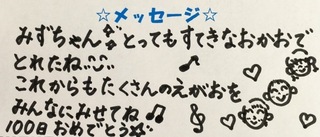 ☆メッセージ☆
みずちゃん とってもすてきなおかおで
とれたね♪
これからもたくさんのえがおを
みんなにみせてね♪
100日おめでとう